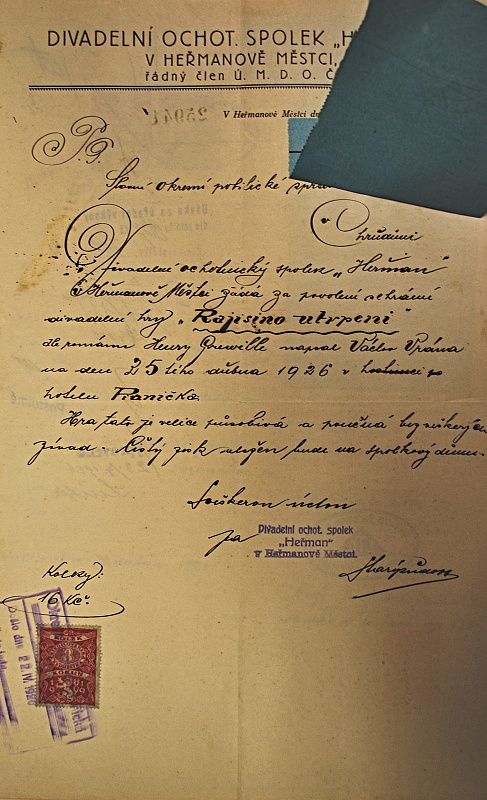 DIVADELNÍ OCHOT. SPOLEK „H
V HEŘMANOVĚ MĚSTCI,
řádný člen Ú. M. D. O. Č
V Heřmanově Městci dn
P. T.
Slavné okresní politické sprá
v Chrudimi
Divadelní ochotnický spolek „Heřman"
v Heřmanově Městci žádá za povolení sehrání
divadelní hry „Rajisino utrpení"
dle románu Henry Grewille napsal Václav Vrána
na den 25tého dubna 1926 v hostinci
hotelu Pranička
Hra tato je velice působivá a poučná bez nízkých
závad. Čistý zisk uložen bude na spolkový dům.
V úctou
pa
Divadelní ochot. spolek
„Heřman"
v Heřmanově Městci.
Kolky:
16 Kč.
KOLEK
KORUN